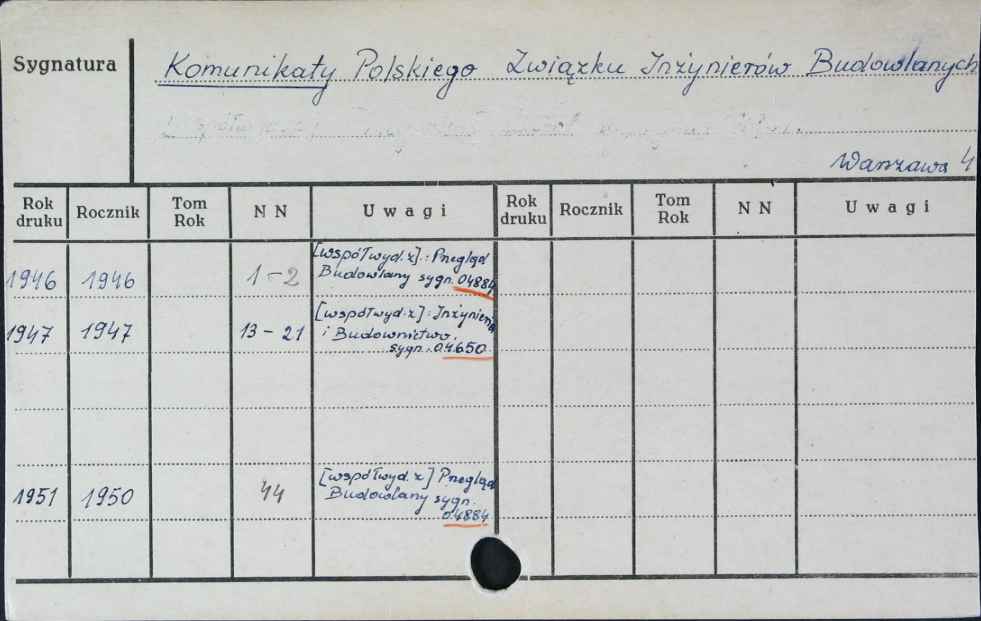 Sygnatura
Komunikaty Polskiego Związku Inżynierów Budowlanych
Warszawa 4
Rok druku Rocznik Tom Rok N N Uwagi Rok druku Rocznik Tom Rok N N Uwagi
1946 1946 1-2 [współwyd. z]: Przegląd
Budowlany sygn. 04884
1947 1947 13-21 [współwyd. z]: Inżynieria
i Budownictwo.
sygn. 04650
1951 1950 44 [współwyd. z] Przegląd
Budowlany sygn.
04884